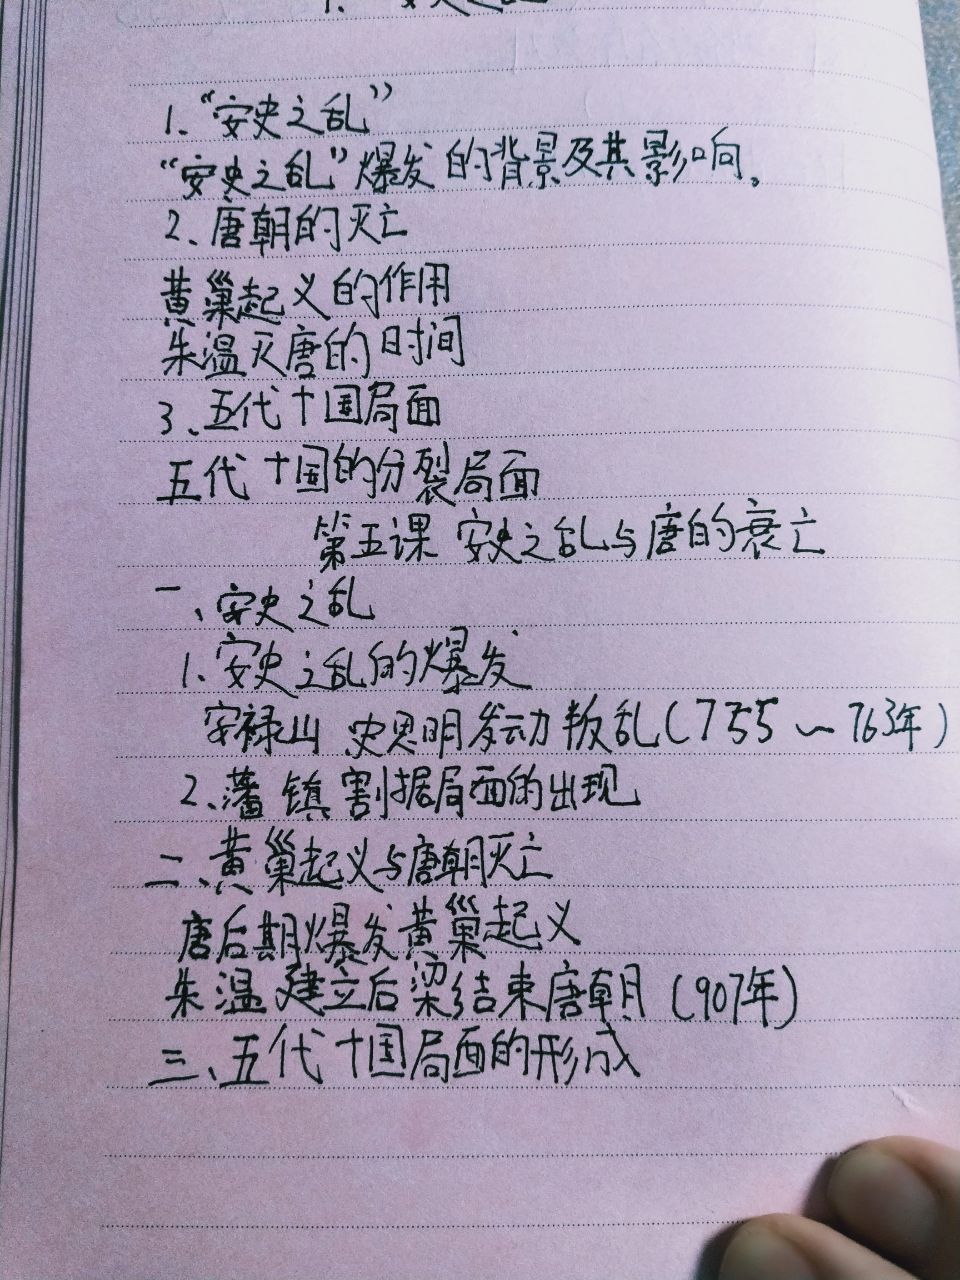 1.“安史之乱”
“安史之乱”爆发的背景及其影响。
2、唐朝的灭亡
黄巢起义的作用
朱温灭唐的时间
3、五代十国局面
五代十国的分裂局面
第五课 安史之乱与唐的衰亡
一、安史之乱
1、安史之乱的爆发
安禄山 史思明发动叛乱(755～763年)
2、藩镇割据局面的出现
二、黄巢起义与唐朝灭亡
唐后期爆发黄巢起义
朱温建立后梁结束唐朝(907年)
三、五代十国局面的形成